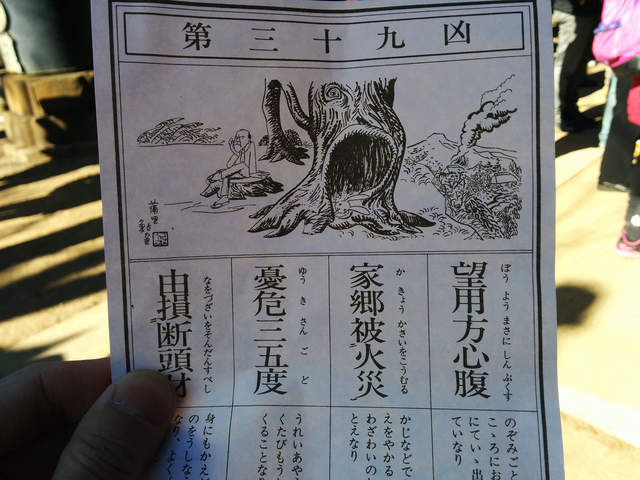 第三十九凶
ぼう よう まさに しん ぷくす
望用方心腹
か きょう かさいをこうむる
家郷被火災
ゆう き さん ご ど
憂危三五度
なをづざいをそんだんすべし
由損断頭財
のぞみごと
こゝろにお
にてい、出
ていなり
かじなどで
えをやかる
わざわいの
とえなり
うれいあや
くたびもう
くることな
身にもかえ
のをうしな
なり、よく